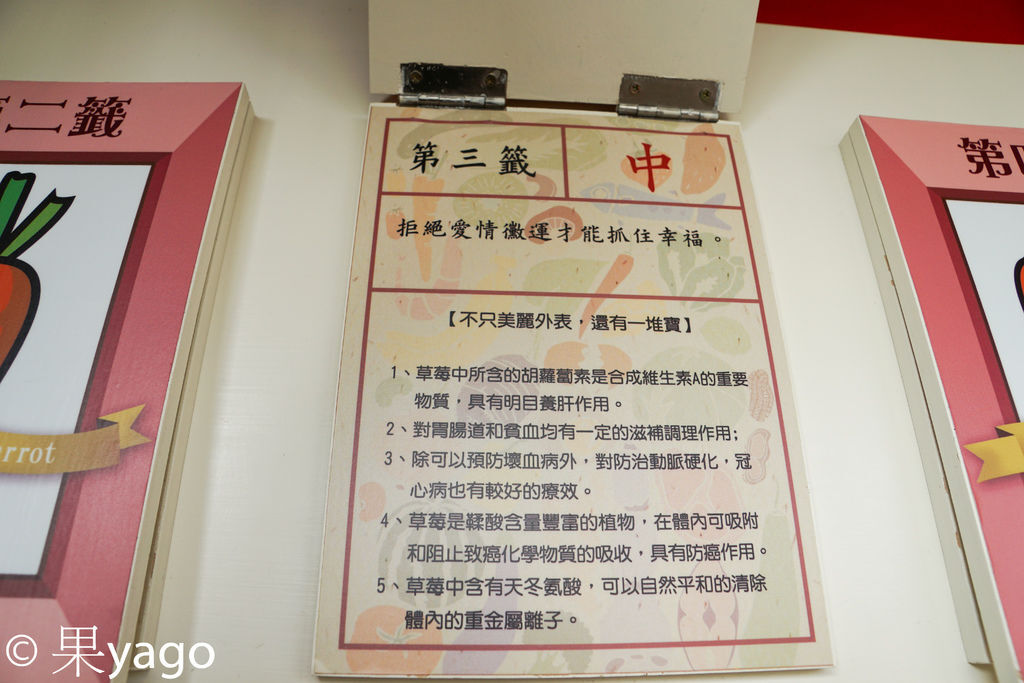 二籤
rrot
第三籤
中
拒絕愛情黴運才能抓住幸福。
【不只美麗外表，還有一堆寶】
1、草莓中所含的胡蘿蔔素是合成維生素A的重要
物質，具有明目養肝作用。
2、對胃腸道和貧血均有一定的滋補調理作用;
3、除可以預防壞血病外，對防治動脈硬化，冠
心病也有較好的療效。
4、草莓是鞣酸含量豐富的植物，在體內可吸附
和阻止致癌化學物質的吸收，具有防癌作用。
5、草莓中含有天冬氨酸，可以自然平和的清除
體內的重金屬離子。
第
© 果yago